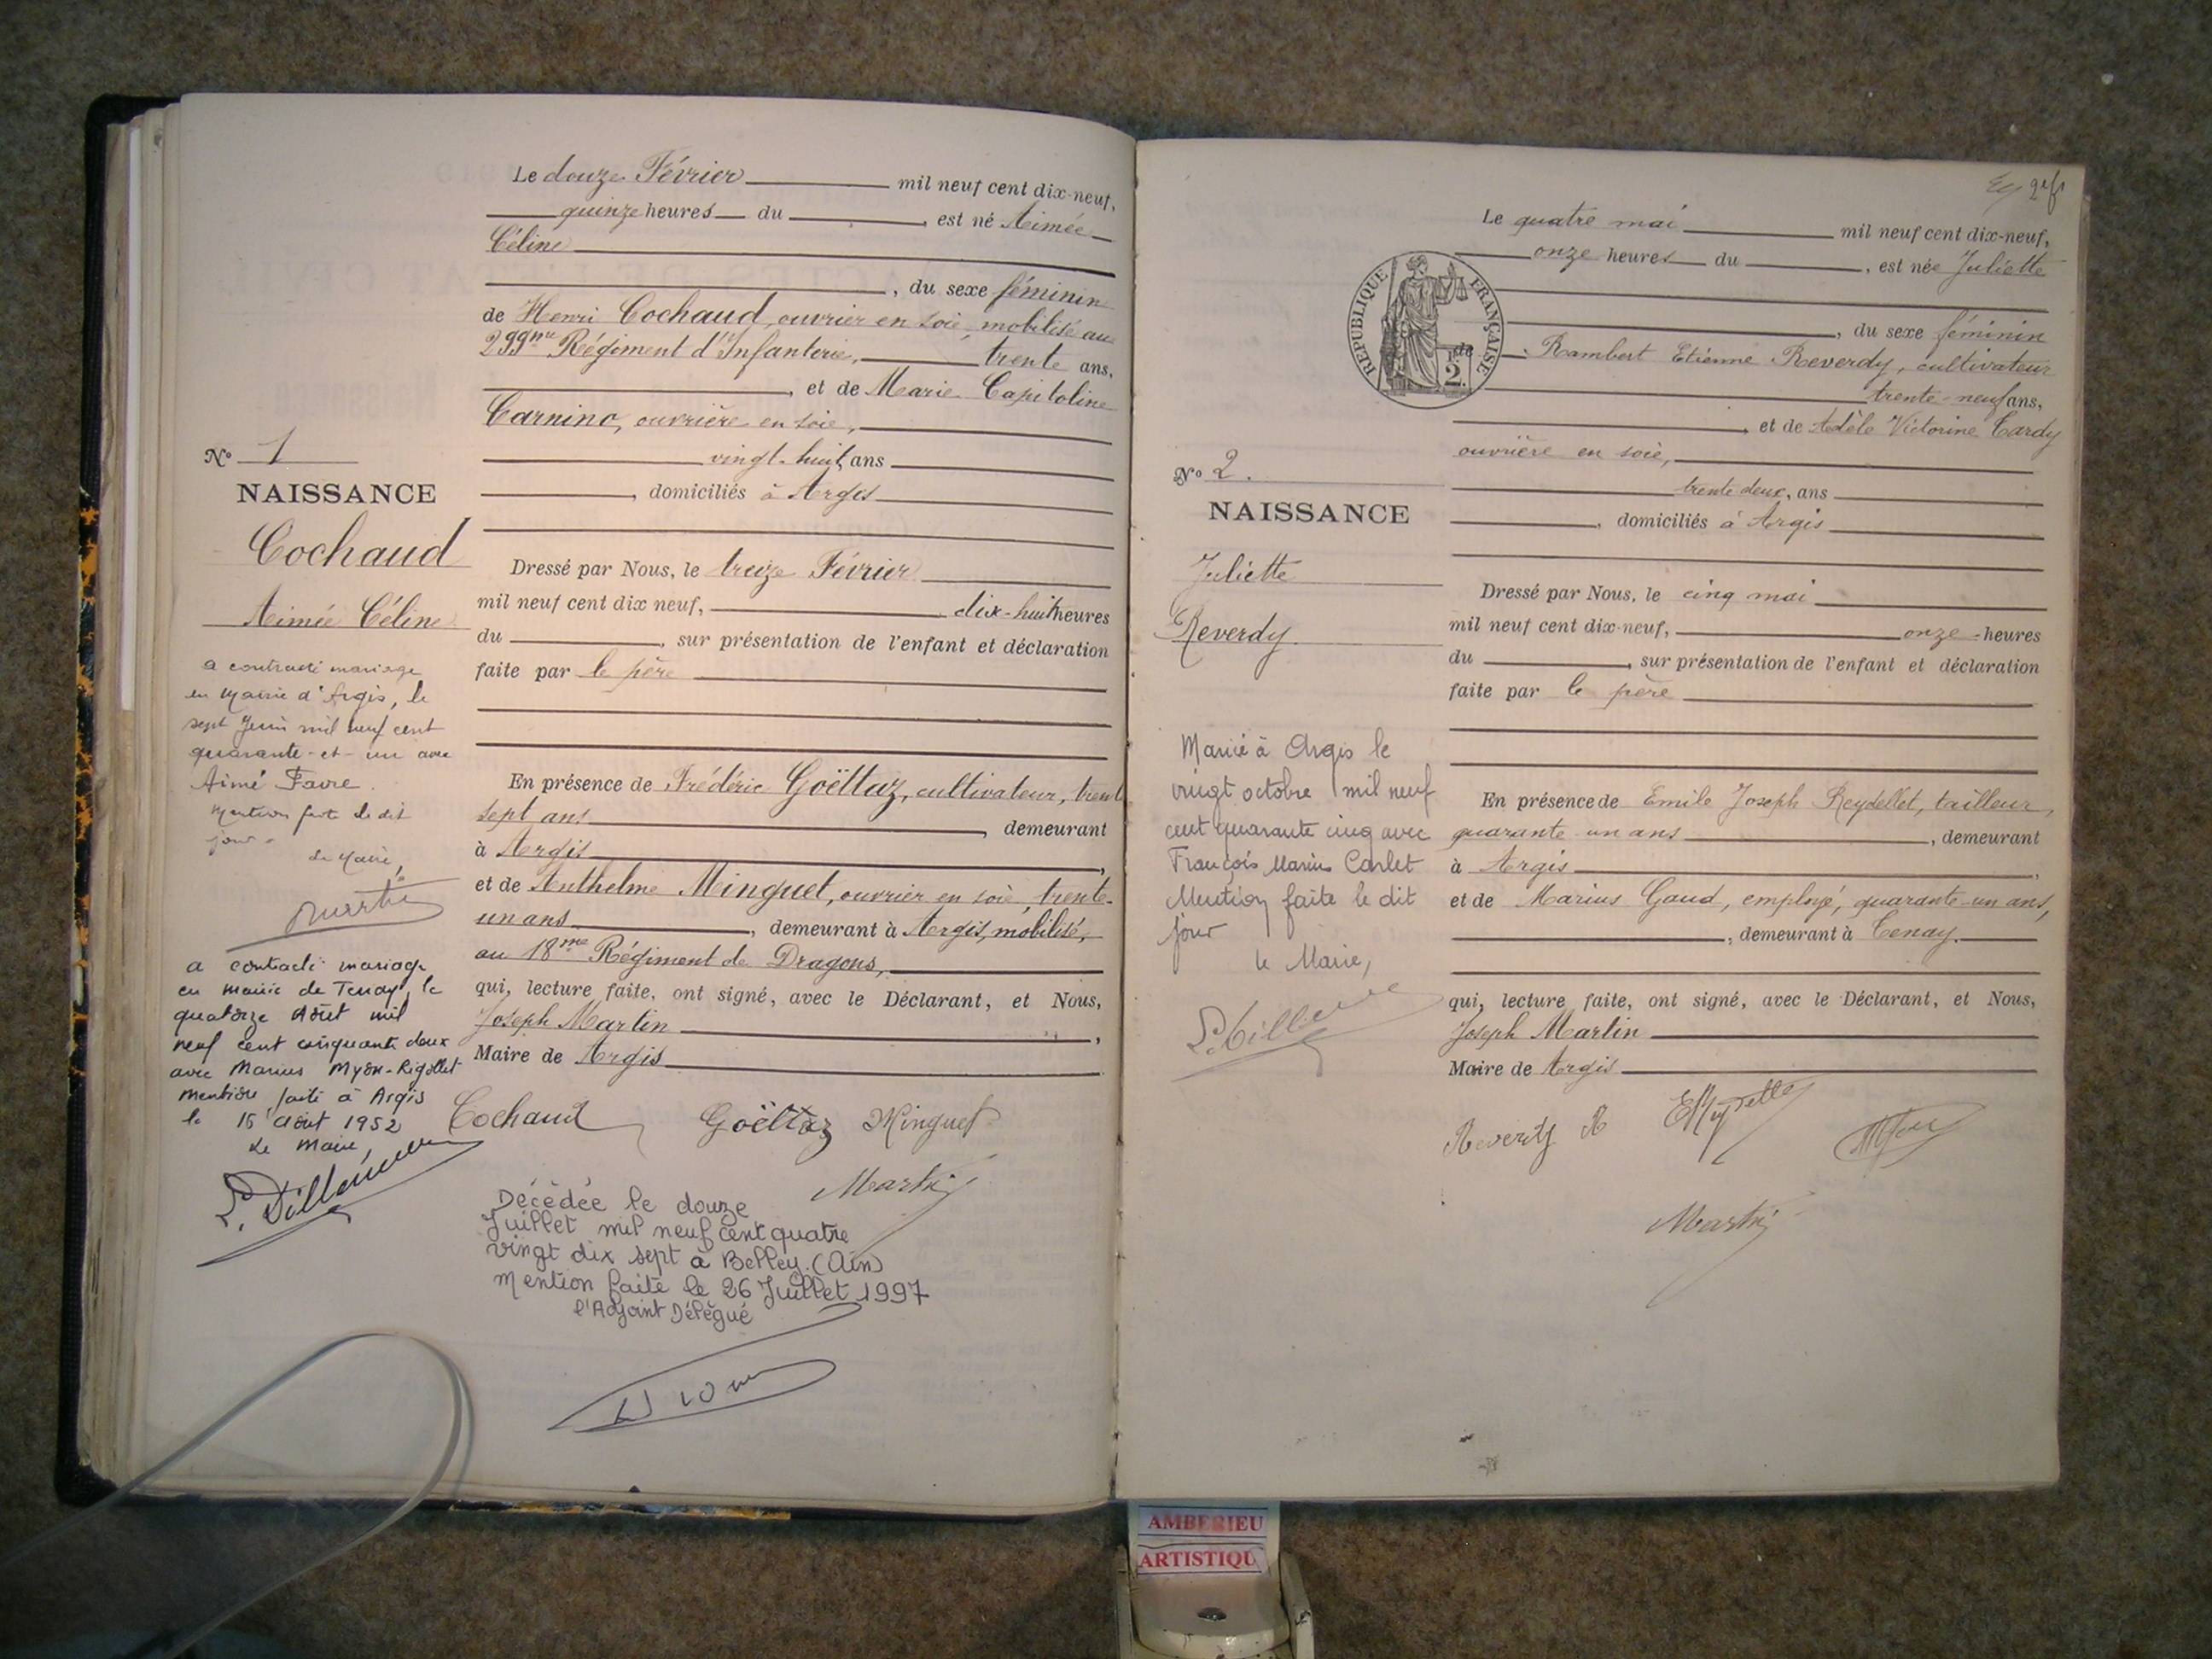 Le douze Février mil neuf cent dix-neuf,
quinze heures du , est né Aimée
Céline
, du sexe féminin
de Henri Cochaud, ouvrier en soie, mobilisé au
299me Régiment d'Infanterie, trente ans,
, et de Marie Capitoline
Carnino, ouvrière en soie,
vingt-huit ans
, domiciliés à Argis
No 1
NAISSANCE
Cochaud
Aimée Céline
Dressé par Nous, le treize Février
mil neuf cent dix neuf, dix-huit heures
du , sur présentation de l'enfant et déclaration
faite par le père
En présence de Frédéric Goëttaz, cultivateur, trente
sept ans , demeurant
à Argis ,
et de Anthelme Minguet, ouvrier en soie, trente-
un ans , demeurant à Argis, mobilisé,
au 18me Régiment de Dragons,
qui, lecture faite, ont signé, avec le Déclarant, et Nous,
Joseph Martin ,
Maire de Argis
Cochaud Goëttaz Minguet
Martin
a contracté mariage
en Mairie d'Argis, le
sept Juin mil neuf cent
quarante-et-un avec
Aimé Favre.
Mention faite le dit
jour.
Le Maire,
Martin
a contracté mariage
en mairie de Tenay le
quatorze Août mil
neuf cent cinquante deux
avec Marius Myon-Rigollet
mention faite à Argis
le 15 août 1952
Le Maire,
Décédée le douze
Juillet mil neuf cent quatre
vingt dix sept à Belley. (Ain)
Mention faite le 26 Juillet 1997
l'Adjoint Délégué
Le quatre mai mil neuf cent dix-neuf,
onze heures du , est née Juliette
, du sexe féminin
de Rambert Etienne Reverdy, cultivateur
trente-neuf ans,
, et de Adèle Victorine Tardy
ouvrière en soie,
trente deux, ans
, domiciliés à Argis
RÉPUBLIQUE FRANÇAISE
2
No 2.
NAISSANCE
Juliette
Reverdy
Dressé par Nous, le cinq mai
mil neuf cent dix-neuf, onze heures
du , sur présentation de l'enfant et déclaration
faite par le père
En présence de Emile Joseph Reydellet, tailleur,
quarante-un ans , demeurant
à Argis ,
et de Marius Gaud, employé, quarante-un ans,
, demeurant à Tenay.
qui, lecture faite, ont signé, avec le Déclarant, et Nous,
Joseph Martin
Maire de Argis
Reverdy R
Martin
Marié à Argis le
vingt octobre mil neuf
cent quarante cinq avec
François Marius Carlet
Mention faite le dit
jour
le Maire,
AMBERIEU
ARTISTIQU